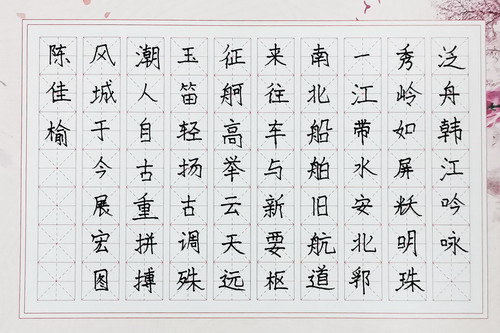 泛舟韩江吟咏
秀岭如屏明珠
一江带水安北郭
南北船舶旧航道
来往车与新要枢
征舸高举云天远
玉笛轻扬古调殊
潮人自古重拼搏
风城于今展宏图
陈佳榆